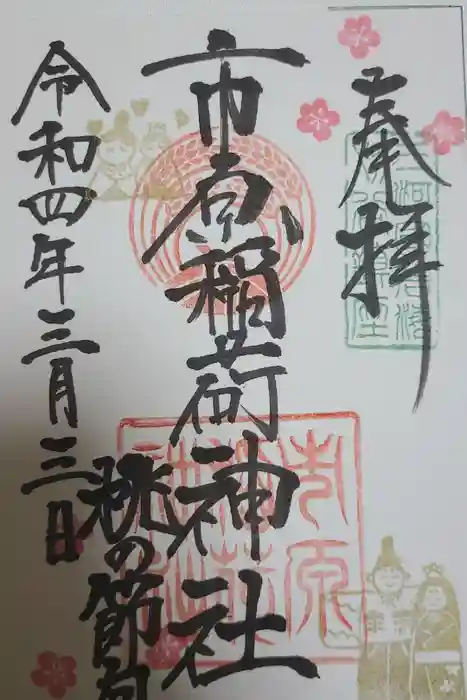 奉拝
市原稲荷神社
桃の節句
令和四年三月三日